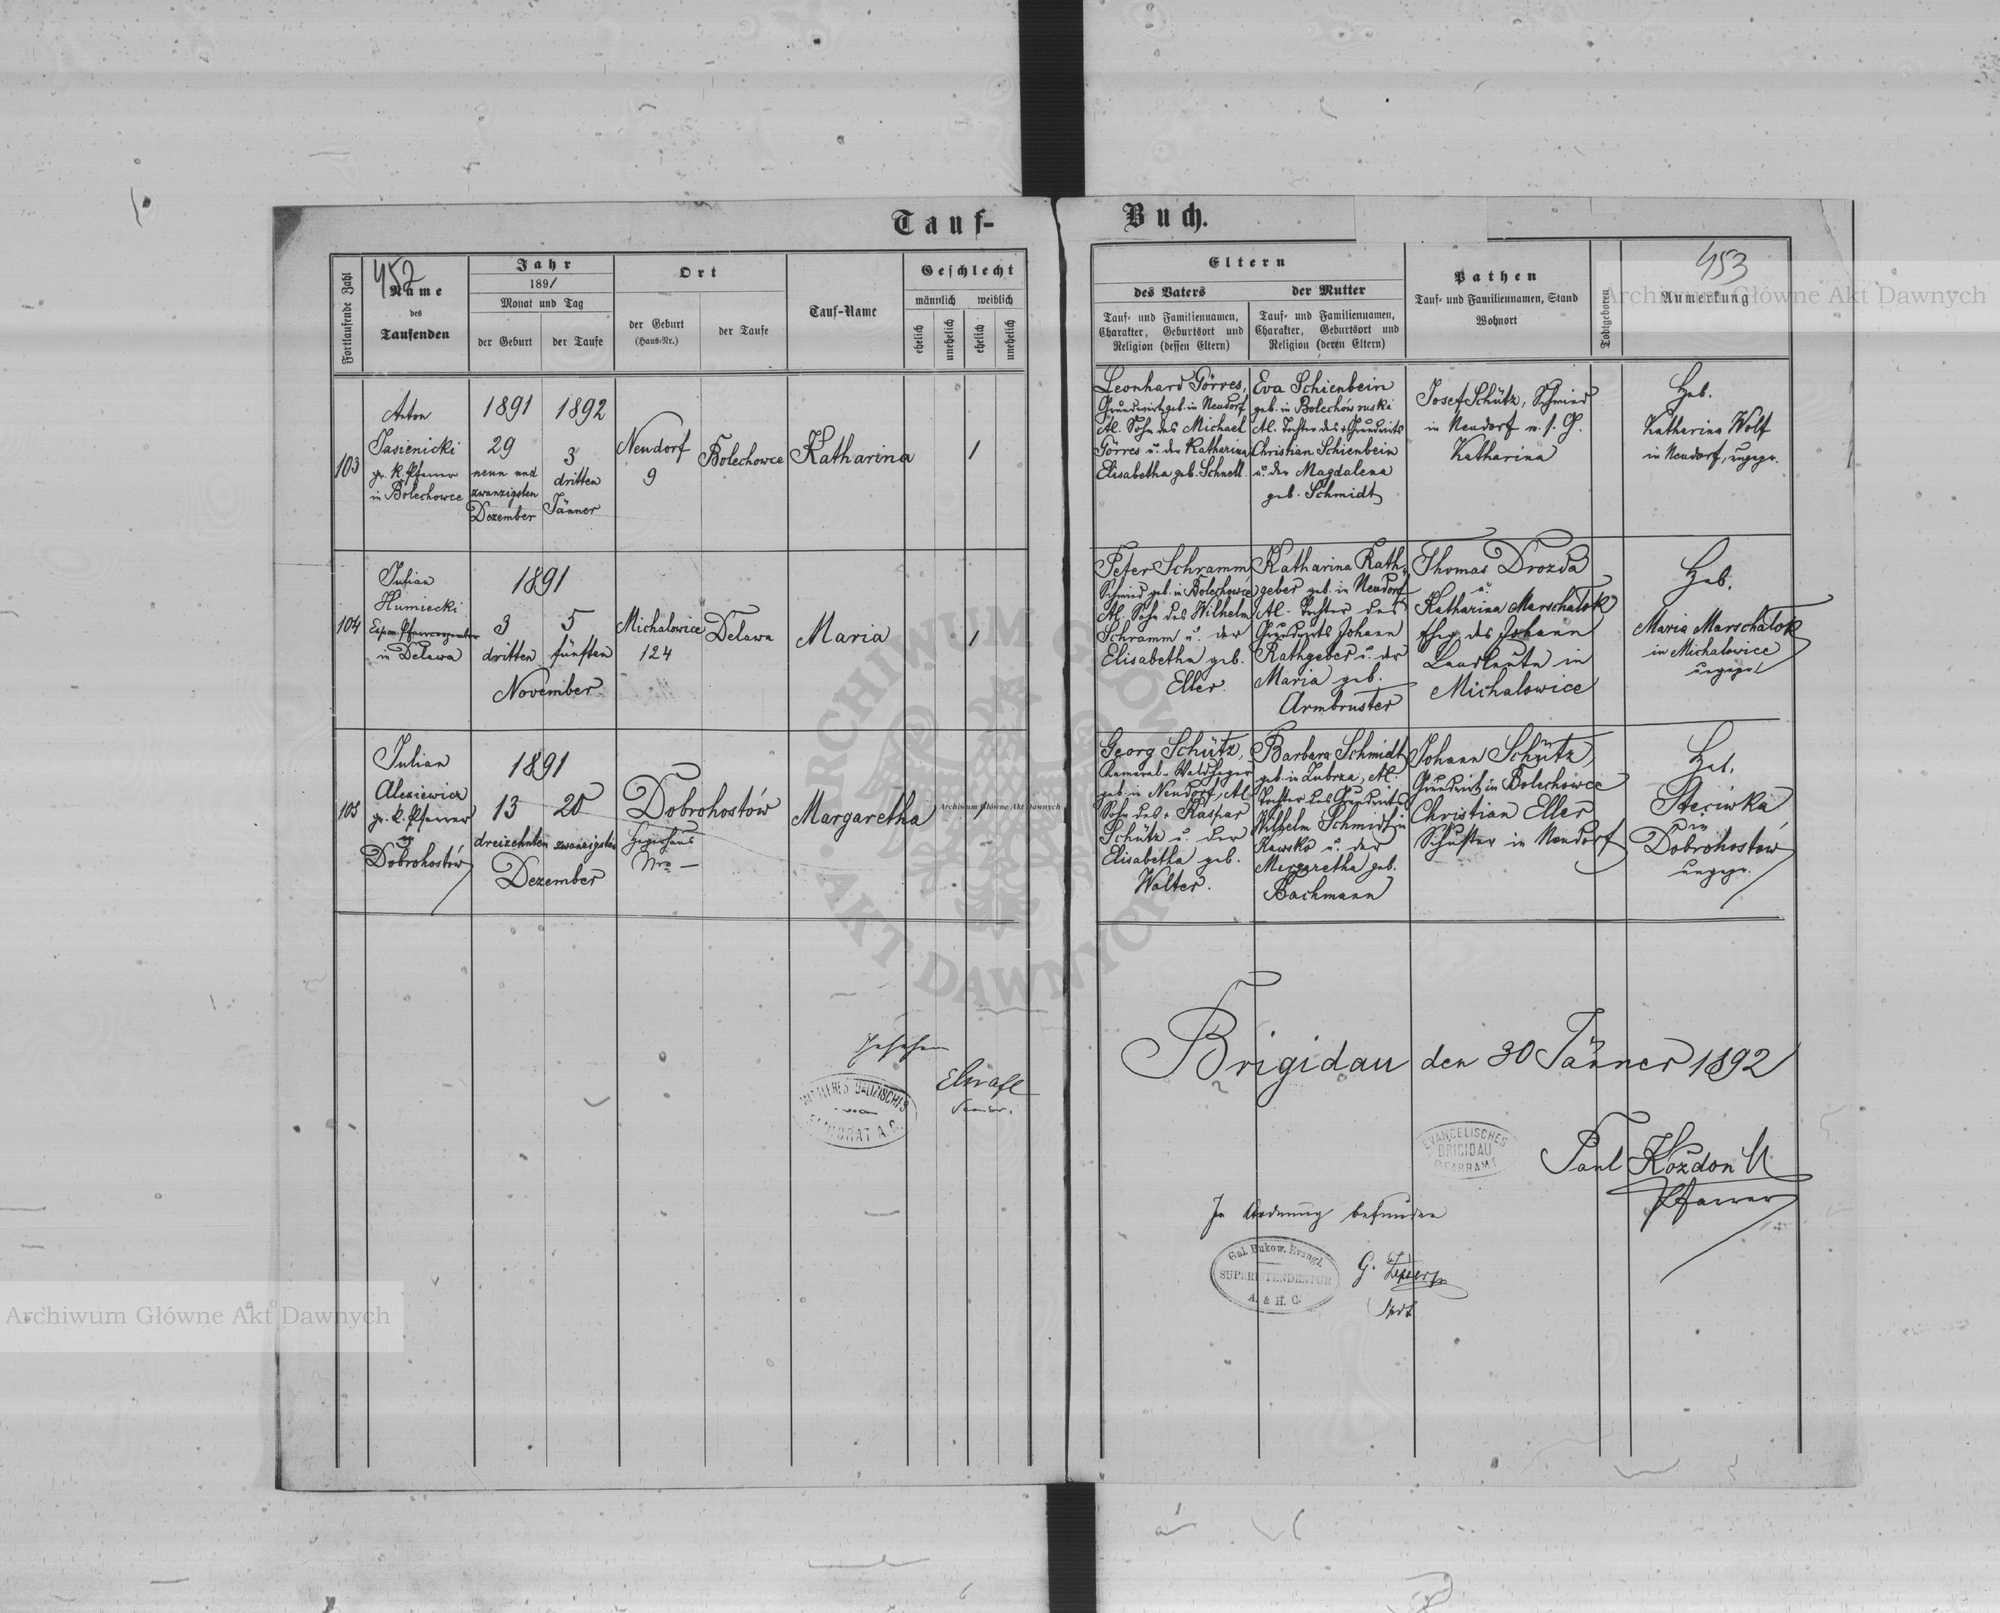 Tauf-
Buch.
452
453
Fortlaufende Zahl
Name
des
Taufenden
Jahr
1891
Monat und Tag
der Geburt
der Taufe
Ort
der Geburt
(Haus-Nr.)
der Taufe
Tauf-Name
Geschlecht
männlich
weiblich
ehelich
unehelich
ehelich
unehelich
Eltern
des Vaters
Tauf- und Familiennamen,
Charakter, Geburtsort und
Religion (dessen Eltern)
der Mutter
Tauf- und Familiennamen,
Charakter, Geburtsort und
Religion (deren Eltern)
Pathen
Tauf- und Familiennamen, Stand
Wohnort
Todtgeboren
Anmerkung
103
Anton
Jasienicki
gr. k. Pfarrer
in Bolechowce
1891
29
neun und
zwanzigsten
Dezember
1892
3
dritten
Jänner
Neudorf
9
Bolechowce
Katharina
1
Leonhard Görres,
Grundwirt geb. in Neudorf
Al. Sohn des Michael
Görres u. der Katharina
Elisabetha geb. Schnell
Eva Schienbein
geb. in Bolechów ruski
Al. Tochter des + Grundwirts
Christian Schienbein
u. der Magdalena
geb. Schmidt
Josef Schütz, Schmied
in Neudorf m. s. G.
Katharina
Heb.
Katharina Wolf
in Neudorf, ungepr.
104
Julian
Humiecki
in Delawa
1891
3
dritten
5
fünften
November
Michalowice
124
Delawa
Maria
1
Peter Schramm
Schmied geb. in Bolechowce
Al. Sohn des Wilhelm
Schramm u. der
Elisabetha geb.
Eller.
Katharina Rath-
geber geb. in Neudorf
Al. Tochter des
Grundwirts Johann
Rathgeber u. der
Maria geb.
Armbruster
Thomas Drozda
u.
Katharina Marschalok
Eheg. des Johann
Landleute in
Michalowice
Heb.
Maria Marschalok
in Michalowice
ungepr.
105
Julian
Alexiewicz
gr. k. Pfarrer
in
Dobrohostów
1891
13
dreizehnten
20
zwanzigsten
Dezember
Dobrohostów
Hegerhaus
Nro —
Margaretha
1
Georg Schütz,
Kameral-Waldheger
geb. in Neudorf, Al.
Sohn des + Kaspar
Schütz u. der
Elisabetha geb.
Walter.
Barbara Schmidt
geb. in Zubrza, Al.
Tochter des Grundwirts
Wilhelm Schmidt in
u. der
Margaretha geb.
Bachmann
Johann Schütz,
Grundwirt in Bolechowce
Christian Eller
Schuster in Neudorf
Heb.
Steciwka
in
Dobrohostów
ungepr.
Brigidau den 30 Jänner 1892
Gesehen
Senior.
GALIZISCHES
SENIORAT A. C.
EVANGELISCHES
BRIGIDAU
PFARRAMT
Paul Kozdon
Pfarrer
In Ordnung befunden
Gal. Bukow. Evangl.
SUPERINTENDENTUR
A. & H. C.
Archiwum Główne Akt Dawnych
Archiwum Główne Akt Dawnych
Archiwum Główne Akt Dawnych
ARCHIWUM GŁÓWNE
AKT DAWNYCH